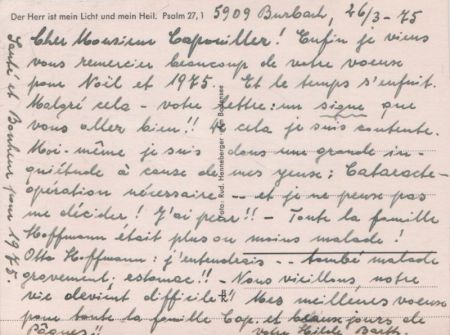 Der Herr ist mein Licht und mein Heil. Psalm 27, 1
5909 Burbach, 26/3 - 75
Cher Monsieur Capouiller! Enfin je viens
vous remercier beaucoup de votre voeux
pour Noël et 1975. Et le temps s'enfuit.
Malgré cela - votre lettre: un signe que
vous aller bien!! de cela je suis contente.
Moi-même je suis dans une grande in-
quiétude à cause de mes yeux; Cataracte-
opération nécessaire -- et je ne peux pas
me décider! J'ai peur!! - Toute la famille
Hoffmann était plus ou moins malade!
Otto Hoffmann: j'entendrais -- tombé malade
gravement: estomac!! - Nous vieillons, notre
vie devient difficile!! Mes meilleures voeux
pour toute la famille Cap. et beaux jours de
Pâques!! Votre Hilde Barth
Santé et Bonheur pour 1975.
Foto: Rud. Henneberger Bodensee